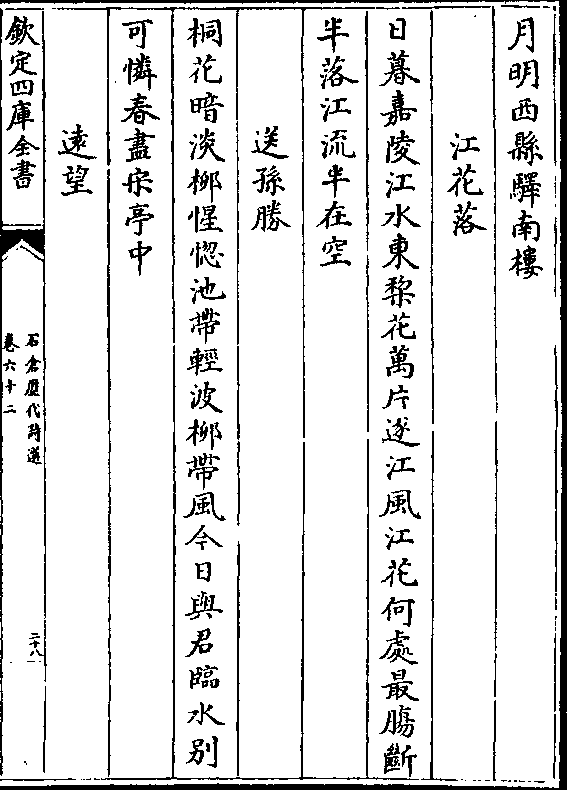 月明西縣驛南樓
江花落
日暮嘉陵江水東棃花萬片逐江風江花何處最膓斷
半落江流半在空
送孫勝
桐花暗淡柳惺惚池帶輕波柳帶風今日與君臨水别
可憐春盡宋亭中
遠望
欽定四庫全書
石倉歷代詩選
卷六十二
二十八